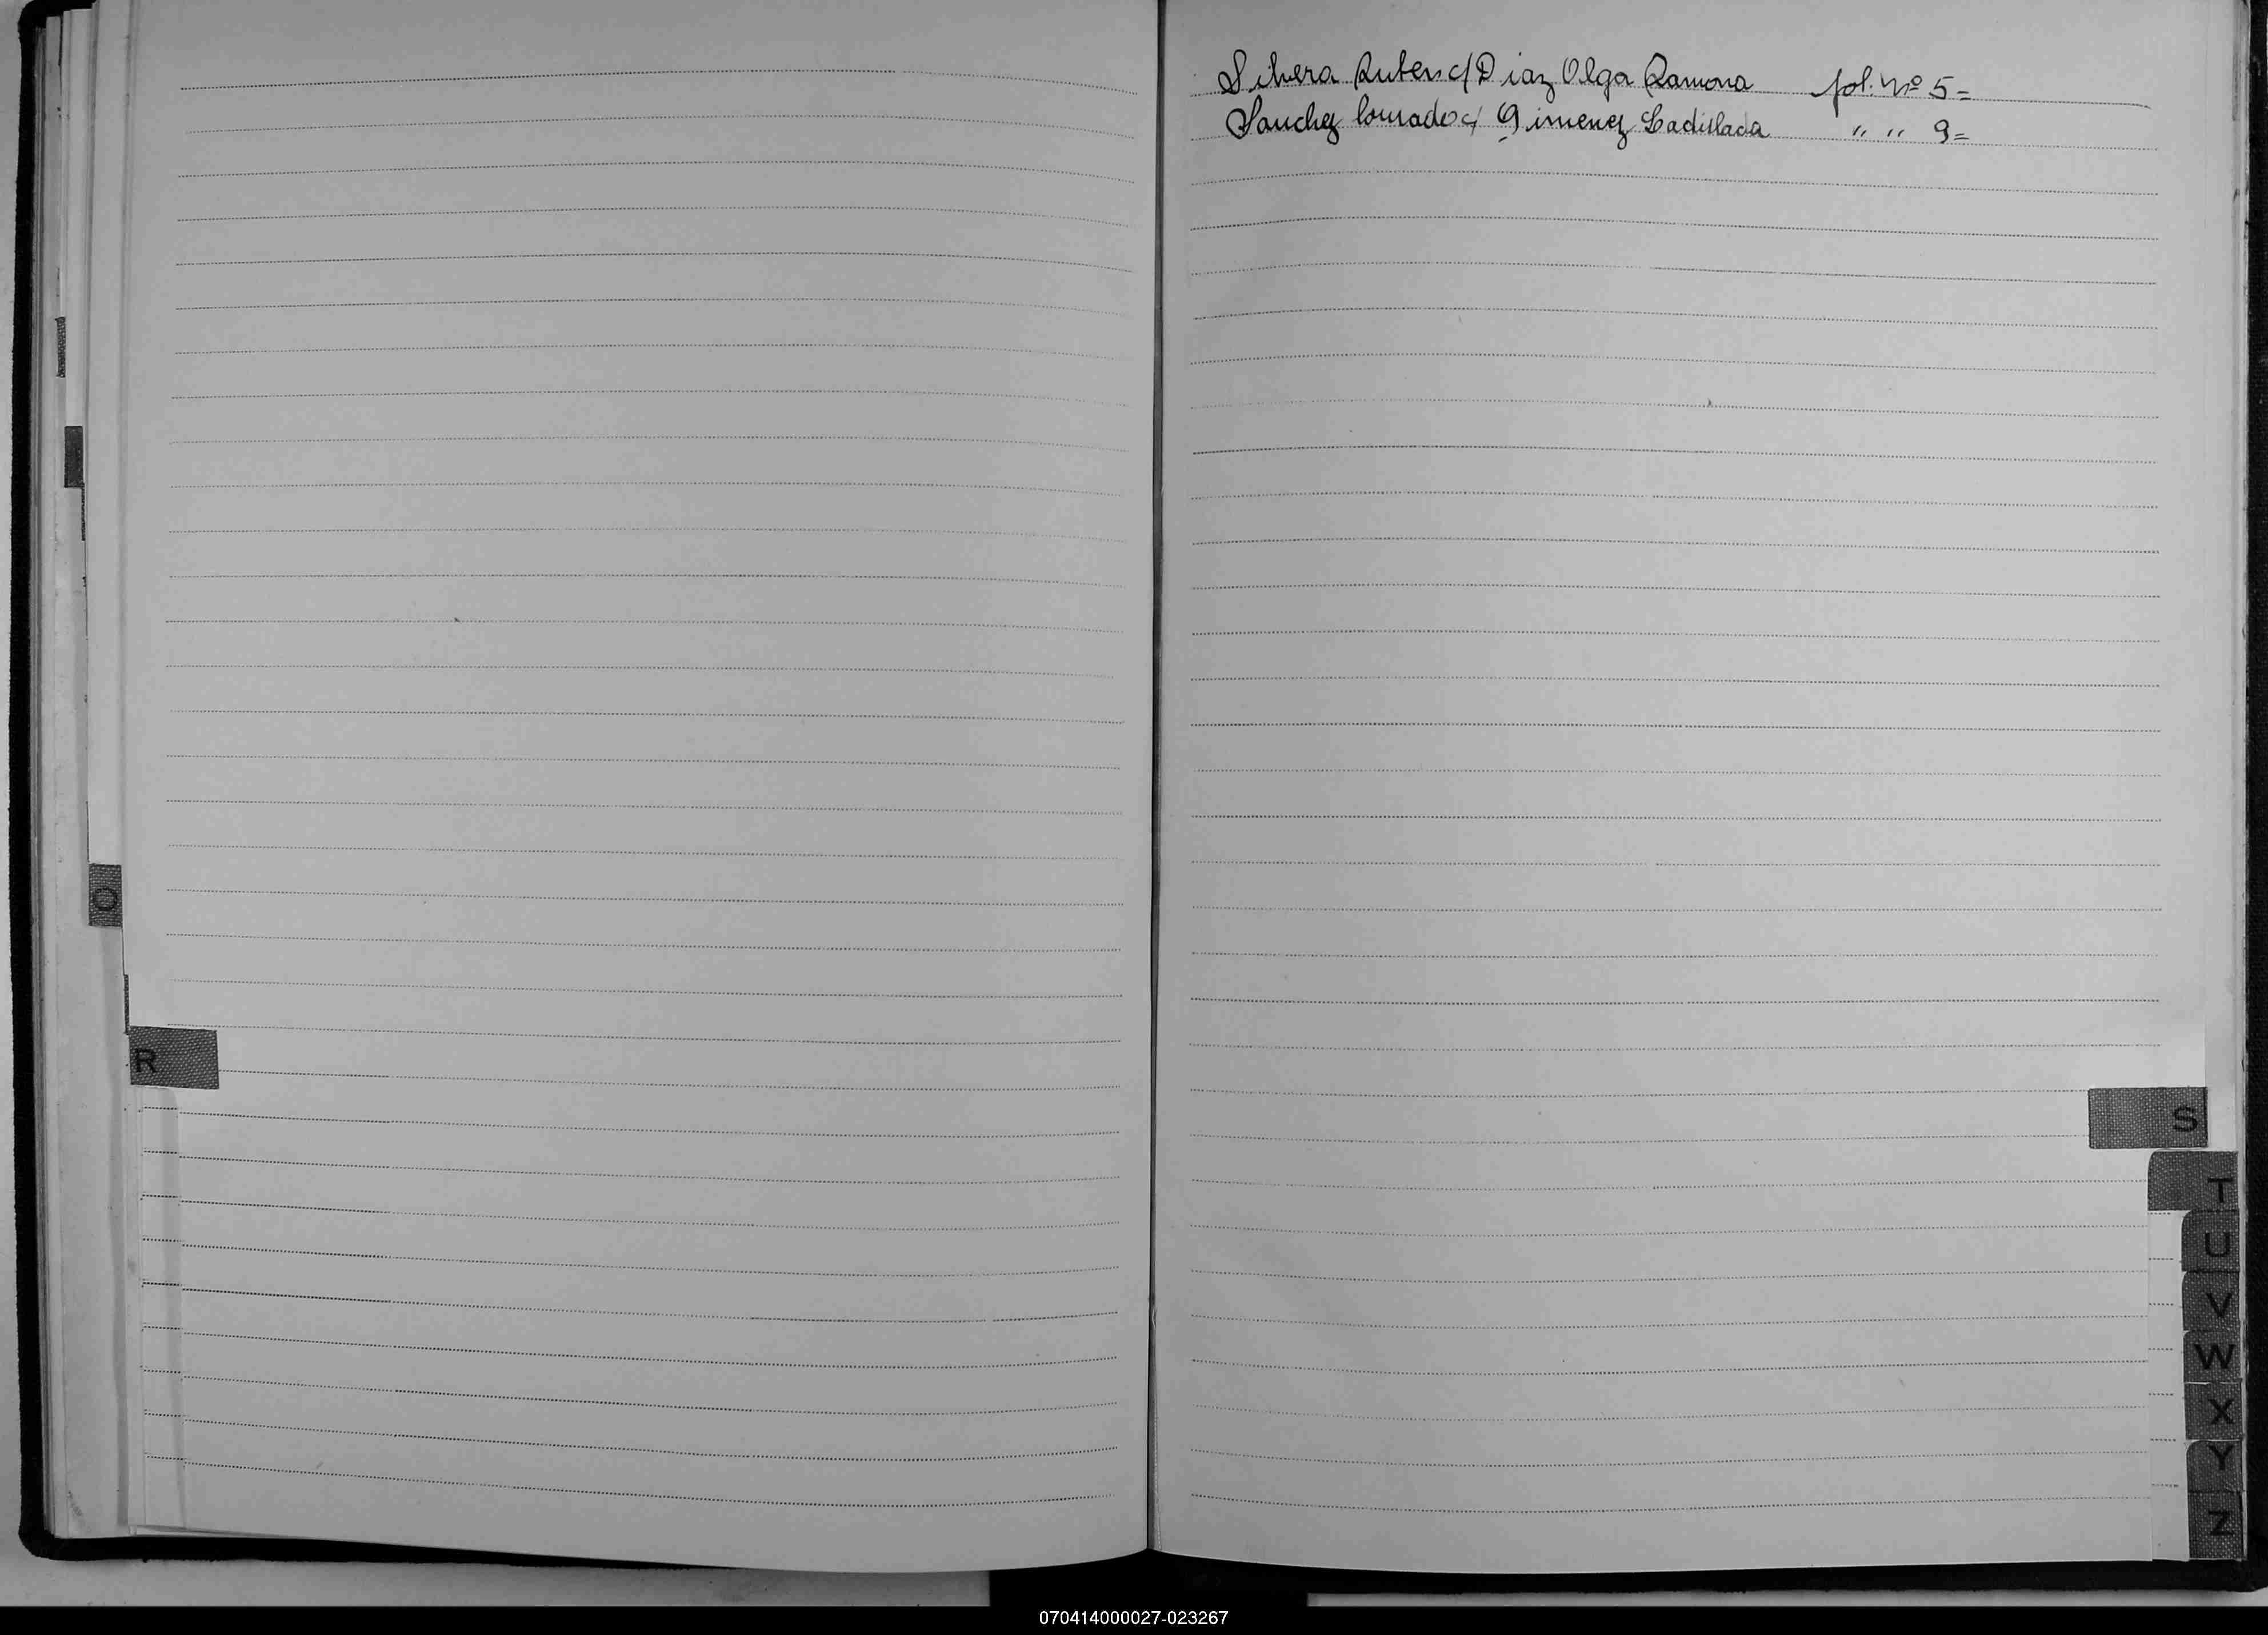 Silvera Ruben c/ Diaz Olga Ramona fol. Nº 5=
Sanchez Conrado c/ Gimenez Ladislada " " 9=
O
R
S
T
U
V
W
X
Y
Z
070414000027-023267